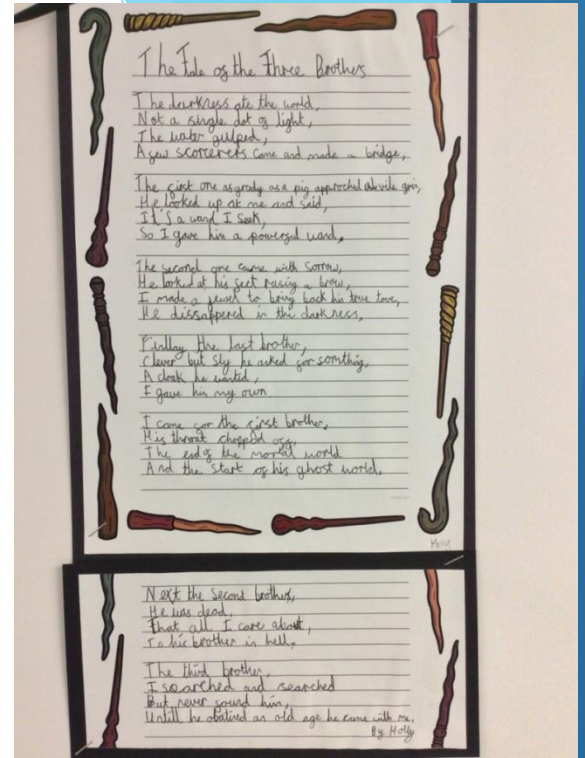 The Tale of the Three Brothers
The darkness ate the world,
Not a single dot of light,
The water gulped,
A few scorcerers came and made a bridge,
The first one as gredy as a pig approched
He looked up at me and said,
It's a wand I seek,
So I gave him a powerful wand,
The second one came with sorrow,
He looked at his feet rasing a brow,
I made a jewel to bring back his true love,
He dissappered in the darkness,
Finllay the last brother,
Clever but sly he asked for somthing,
A cloak he wanted,
I gave him my own
I came for the first brother,
His throat chopped off,
The end of the mortal world
And the start of his ghost world.
Molly
Next the second brother,
He was dead,
That all I care about,
To his brother in hell,
The third brother,
I searched and searched
But never found him,
Untill he obatived an old age he came with me.
By Molly